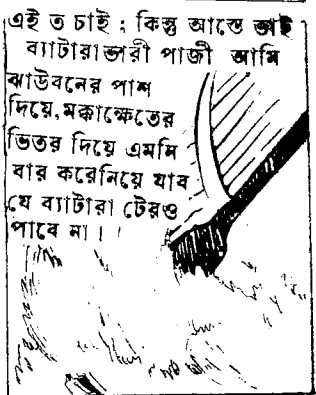 এই ত চাই ; কিন্তু আস্তে ভাই
ব্যাটারাভারী পাজী আমি
ঝাউবনের পাশ
দিয়ে, মক্কাক্ষেতের
ভিতর দিয়ে এমনি
বার করেনিয়ে যাব
যে ব্যাটারা টেরও
পাবে না।